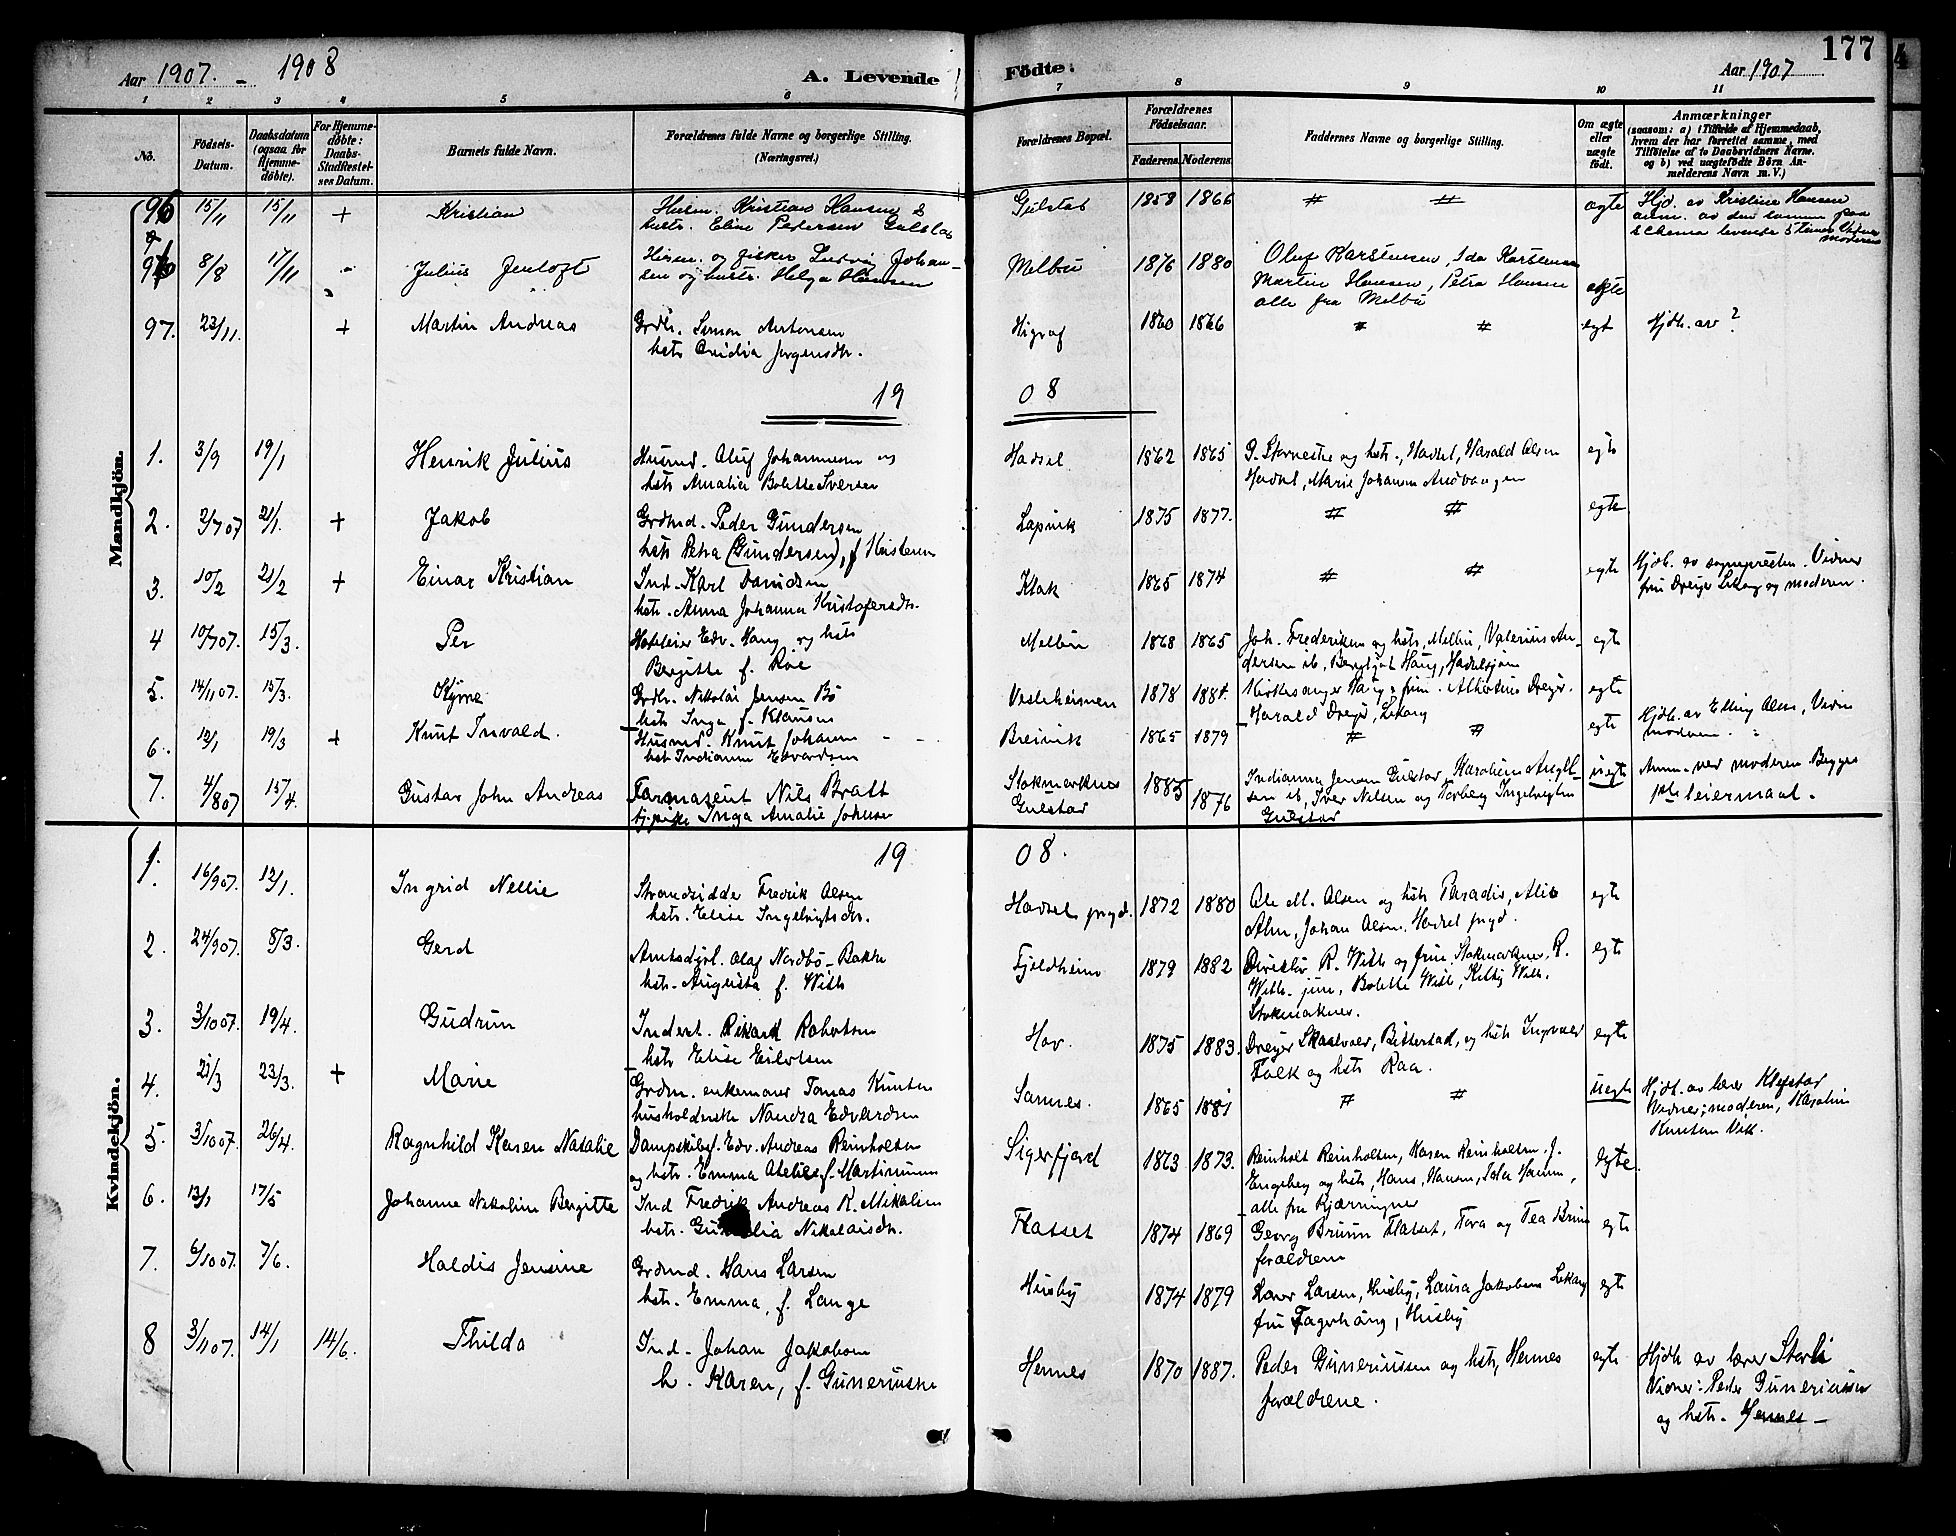 Aar 1907. - 1908
A. Levende
Födte.
Aar 1907
177
1 2 3 4 5 6 7 8 9 10 11
No.
Födsels-
Datum.
Daabsdatum
(ogsaa for
Hjemme-
döbte).
For Hjemme-
döbte:
Daabs-
Stadfæstel-
ses Datum.
Barnets fulde Navn.
Forældrenes fulde Navne og borgerlige Stilling.
(Næringsvei.)
Forældrenes Bopæl.
Forældrenes
Födselsaar.
Faderens. Moderens.
Faddernes Navne og borgerlige Stilling.
Om ægte
eller
uægte
födt.
Anmærkninger
(saasom: a) i Tilfælde af Hjemmedaab,
hvem der har forrettet samme, med
Tilföielse af to Daabsvidners Navne,
og b) ved uægtefödte Börn An-
melderens Navn m. V.)
Mandkjön.
96 15/11 15/11 + Kristian Kristian Hansen &
hustr. Eline Pedersen Gulstad
Gulstad 1858 1866 # # ægte Hjd. av Kristine Hansen
anm. av den samme paa
schema levende 5 timer
moderen
8/8 17/11 Julius Jentoft og fisker Ludvig Johan-
sen og hustr. Helga Hansen
Melbu 1876 1880 Oluf Karstensen, Ida Karstensen
Martin Hansen, Petra Hansen
alle fra Melbu
ægte
97. 23/11. + Martin Andreas Grdbr. Simon Antonsen
hstr Ovidia Jörgensdtr.
Higrav 1860 1866 # # egt Hjdb. av ?
19 08
1. 3/9 19/1 Henrik Julius Husmd. Oluf Johannesen og
hstr Amalia Bolette Iversen
Hadsel 1862 1865 G. Stornestre og hstr., Hadsel, Harald Olsen
Hadsel, Marie Johansen
egte
2. 2/7 07 21/1. + Jakob Grdmd. Peder Gundersen
hstr Petra (Gundersen), f
Lapvik 1875 1877. # # egte
3. 10/2 21/2 + Einar Kristian Ind. Karl Davidsen
hstr. Anna Johanna Kristofersdtr.
Klak 1865 1874 # # egte Hjdb. av sognepresten. Vidner
fru Dreyer Lekang og moderen.
4 10/7 07. 15/3. Per Hoteleier Edv. Haug og hstr
Bergitte f. Röe
Melbu 1868 1865 Joh. Frederiksen og hstr, Melbu, Valerius An-
dersen ib, Bergljot Haug, Hadselsjöen
egte
5. 14/11 07. 15/3. Styrme Grdbr. Nikolai Jensen Bö
hstr Inga f. Klausen
1878 1884. Kirkesanger Haug & frue. Albertine Dreyer.
Harald Dreyer, Lekang
egte
6. 12/1 19/3 + Knut Invald. Husmd. Knut Johansen
hstr Indianna Edvardsen
Breivik 1865 1879 # # egte Hjdb. av Elling Olsen, Vidne
moderen.
7. 4/8 07 15/4. Gustav John Andreas Farmaseut Nils Bratt
tj.pike Inga Amalie Johnsen
Stokmarknes
Gulstad
1885 1876 Indianna Jensen Gulstad, Karoline Angell-
sen ib, Iver Nilsen og Torberg Ingebrigtsen
Gulstad
uegte Anm. ved moderen Begges
leiermaal.
Kvindekjön.
19 08.
1. 16/9 07. 12/1. Ingrid Nellie Strandsidde Fredrik Olsen
hstr. Elise Ingebrigtsdtr.
Hadsel prgd. 1872 1880 Ole M. Olsen og hstr Paradis, Alis
Olsen, Johan Olsen. Hadsel prgd.
egte
2. 24/9 07. 8/3. Gerd Amtsdyrl. Olaf Nordbö-Bakke
hstr. Augusta f. With
Fjeldheim 1879 1882 Direktör R. With og frue, Stokmarknes, R.
With. jun, Bolette With, Kitty With.
Stokmarknes.
egte
3. 3/10 07. 19/4. Gudrun Inderst. Rikard Robertsen
hstr Elise Eilertsen
Hov. 1875 1883. Dreyer Skaalvær, Bitterstad, og hstr Ingvald
Falk og hstr Raa.
egte
4. 21/3 23/3. + Marie Grdm. enkemand Tomas Knutsen
husholderske Nandra Edvardsen
Sannes. 1865 1881 # # uegte Hjdb. av lærer Klefstad
Vidner; moderen, Karoline
Knutsen Vik.
5. 3/10 07. 26/4. Ragnhild Karen Natalie Dampskibsf. Edv. Andreas Reinholtsen
og hstr. Emma f. Martinussen
Sigerfjord 1863 1873. Reinholt Reinholtsen, Karen Reinholtsen. J.
Engeberg og hstr, Hans Hansen,
alle fra Kjærringnes
egte.
6. 13/1 17/5 Johanne Nikoline Bergitte Ind Fredrik Andreas R. Mikalsen
hstr. Nikolaisdtr.
Flasset 1874 1869 Georg Bruun Flatset, Tora og Tea Bruun
forældrene
egte
7. 6/10 07. 7/6. Haldis Jensine Grdmd. Hans Larsen
hstr. Emma, f. Lange
Husby 1874 1879 Larsen, Husby, Laura Jakobsen Lekang
fru Fagerhaug, Husby
egte
8 3/1 07. 14/1 14/6. Thilda Ind. Johan Jakobsen
h. Karen, f. Guneriussen
Hennes 1870 1887. Peder Guneriussen og hstr, Hennes
forældrene.
egte Hjdb av lærer
Vidner: Peder Guneriussen
og hstr. Hennes -